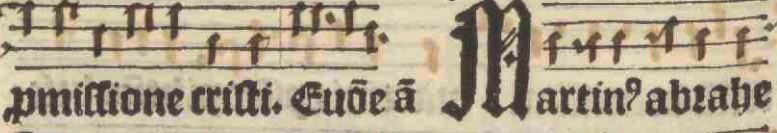 ꝓmissione cristi. Euōe ā Martinꝰ abrahe